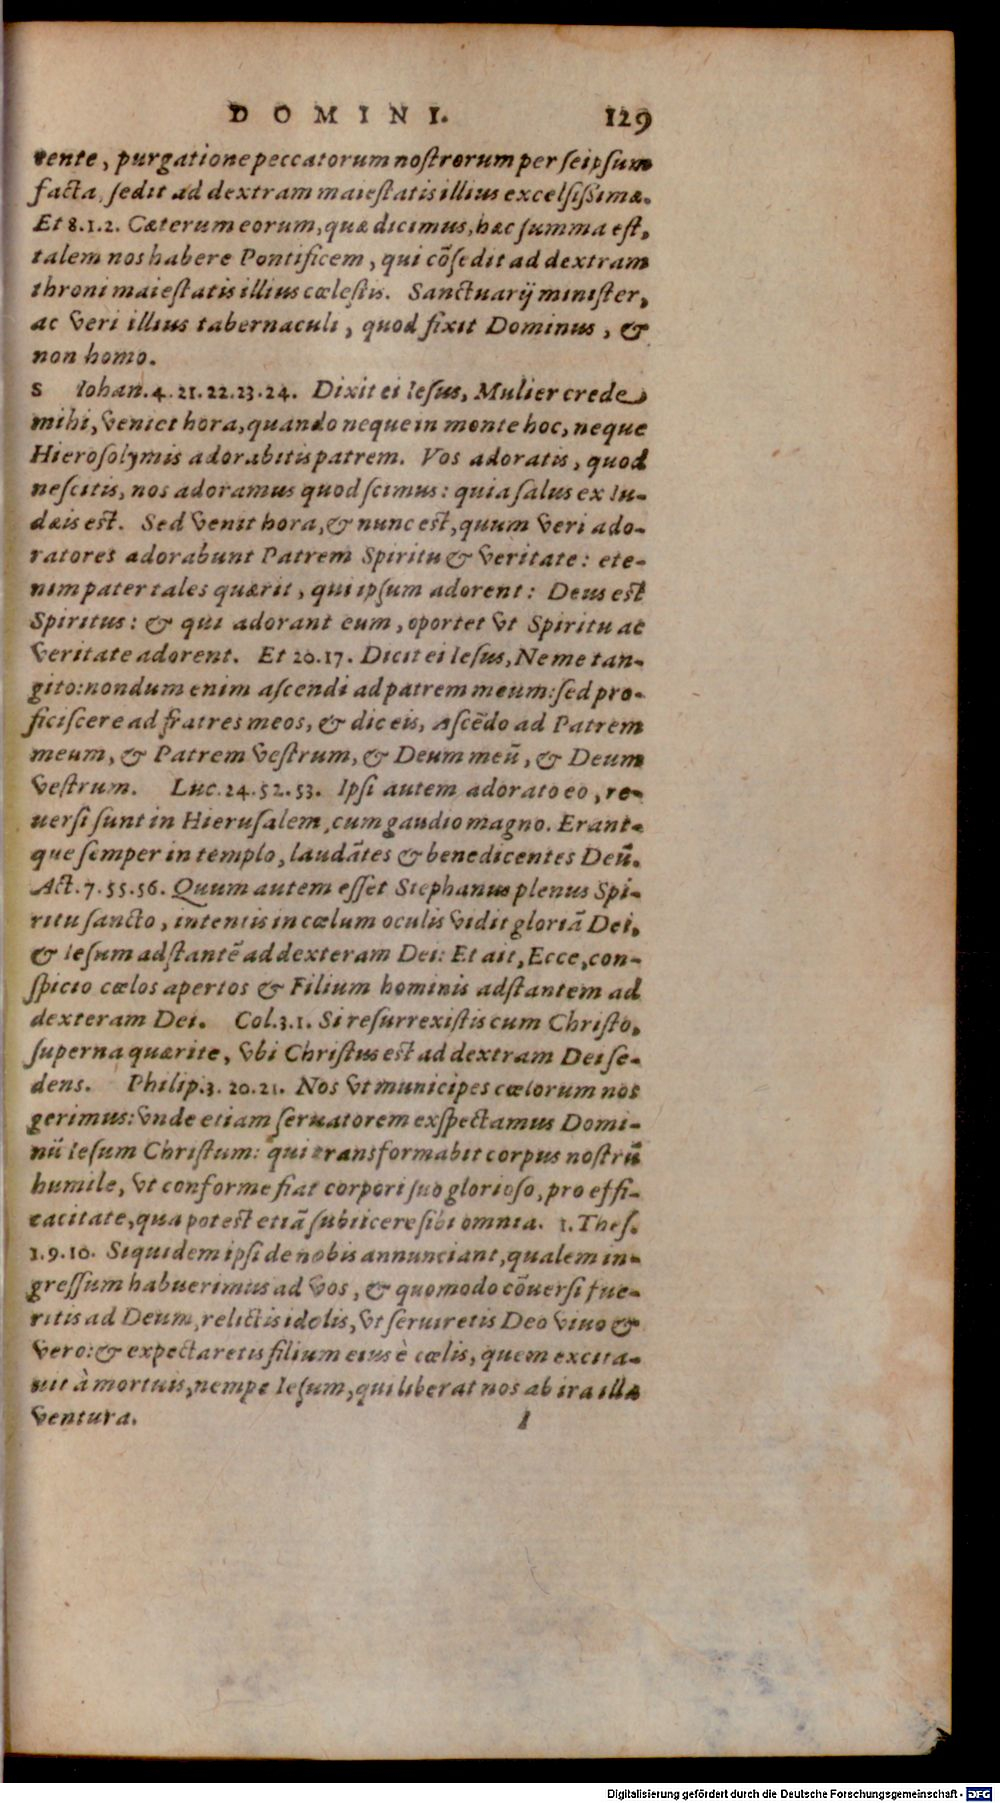 DOMINI. 129
rente, purgatione peccatorum nostrorum per seipsum
facta, sedit ad dextram maiestatis illius excelsissimæ.
Et 8.1.2. Cæterum eorum, quæ dicimus, hæc summa est,
talem nos habere Pontificem, qui cõsedit ad dextram
throni maiestatis illius cœlestis. Sanctuarij minister,
ac veri illius tabernaculi, quod fixit Dominus, &
non homo.
s Iohan.4.21.22.23.24. Dixit ei Iesus, Mulier crede
mihi, veniet hora, quando neque in monte hoc, neque
Hierosolymis adorabitis patrem. Vos adoratis, quod
nescitis, nos adoramus quod scimus: quia salus ex Iu-
dæis est. Sed venit hora, & nunc est, quum veri ado-
ratores adorabunt Patrem Spiritu & veritate: ete-
nim pater tales quærit, qui ipsum adorent: Deus est
Spiritus: & qui adorant eum, oportet vt Spiritu ac
veritate adorent. Et 20.17. Dicit ei Iesus, Ne me tan-
gito: nondum enim ascendi ad patrem meum: sed pro-
ficiscere ad fratres meos, & dic eis, Ascẽdo ad Patrem
meum, & Patrem vestrum, & Deum meũ, & Deum
vestrum. Luc.24.52.53. Ipsi autem adorato eo, re-
uersi sunt in Hierusalem, cum gaudio magno. Erant-
que semper in templo, laudãtes & benedicentes Deũ.
Act.7.55.56. Quum autem esset Stephanus plenus Spi-
ritu sancto, intentis in cœlum oculis vidit gloriã Dei,
& Iesum adstantẽ ad dexteram Dei: Et ait, Ecce, con-
spicio cœlos apertos & Filium hominis adstantem ad
dexteram Dei. Col.3.1. Si resurrexistis cum Christo,
superna quærite, vbi Christus est ad dextram Dei se-
dens. Philip.3.20.21. Nos vt municipes cœlorum nos
gerimus: vnde etiam seruatorem exspectamus Domi-
nũ Iesum Christum: qui transformabit corpus nostrũ
humile, vt conforme fiat corpori suo glorioso, pro effi-
cacitate, qua potest etiã subiicere sibi omnia. 1.Thes.
1.9.10. Siquidem ipsi de nobis annunciant, qualem in-
gressum habuerimus ad vos, & quomodo cõuersi fue-
ritis ad Deum, relictis idolis, vt seruiretis Deo viuo &
vero: & expectaretis filium eius è cœlis, quem excita-
uit à mortuis, nempe Iesum, qui liberat nos ab ira illa
ventura. I
Digitalisierung gefördert durch die Deutsche Forschungsgemeinschaft - DFG